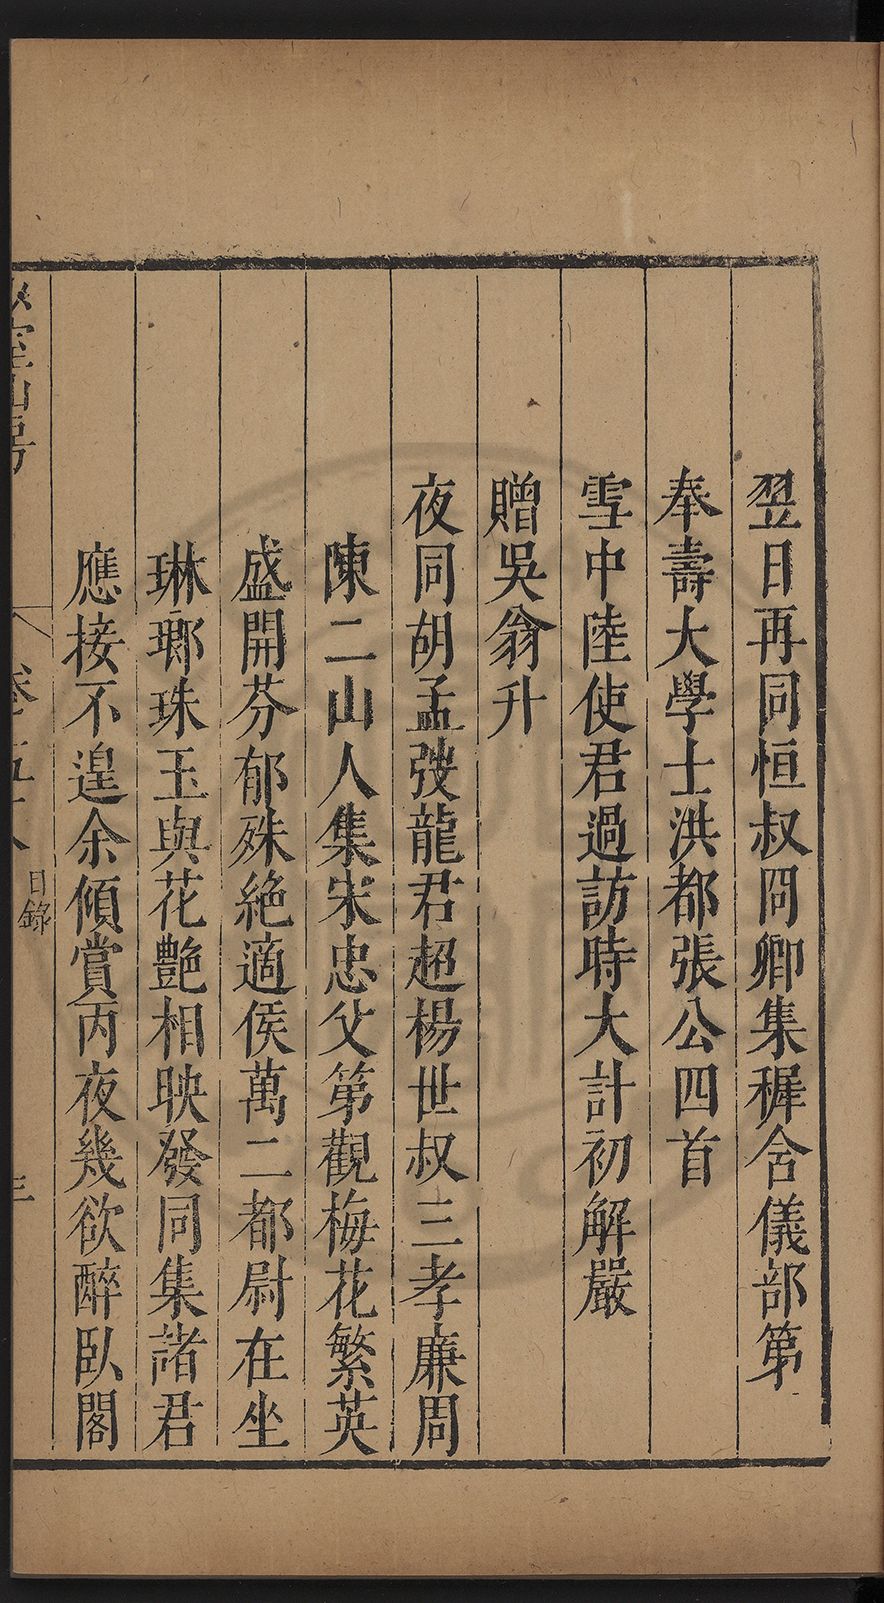 翌日再同恒叔冏卿集穉含儀部第
奉壽大學士洪都張公四首
雪中陸使君過訪時大計初解嚴
贈吳翁升
夜同胡孟弢龍君超楊世叔三孝廉周
陳二山人集宋忠父第觀梅花繁英
盛開芬郁殊絕適侯萬二都尉在坐
琳瑯珠玉與花艷相映發同集諸君
應接不遑余傾賞丙夜幾欲醉臥閣
目錄